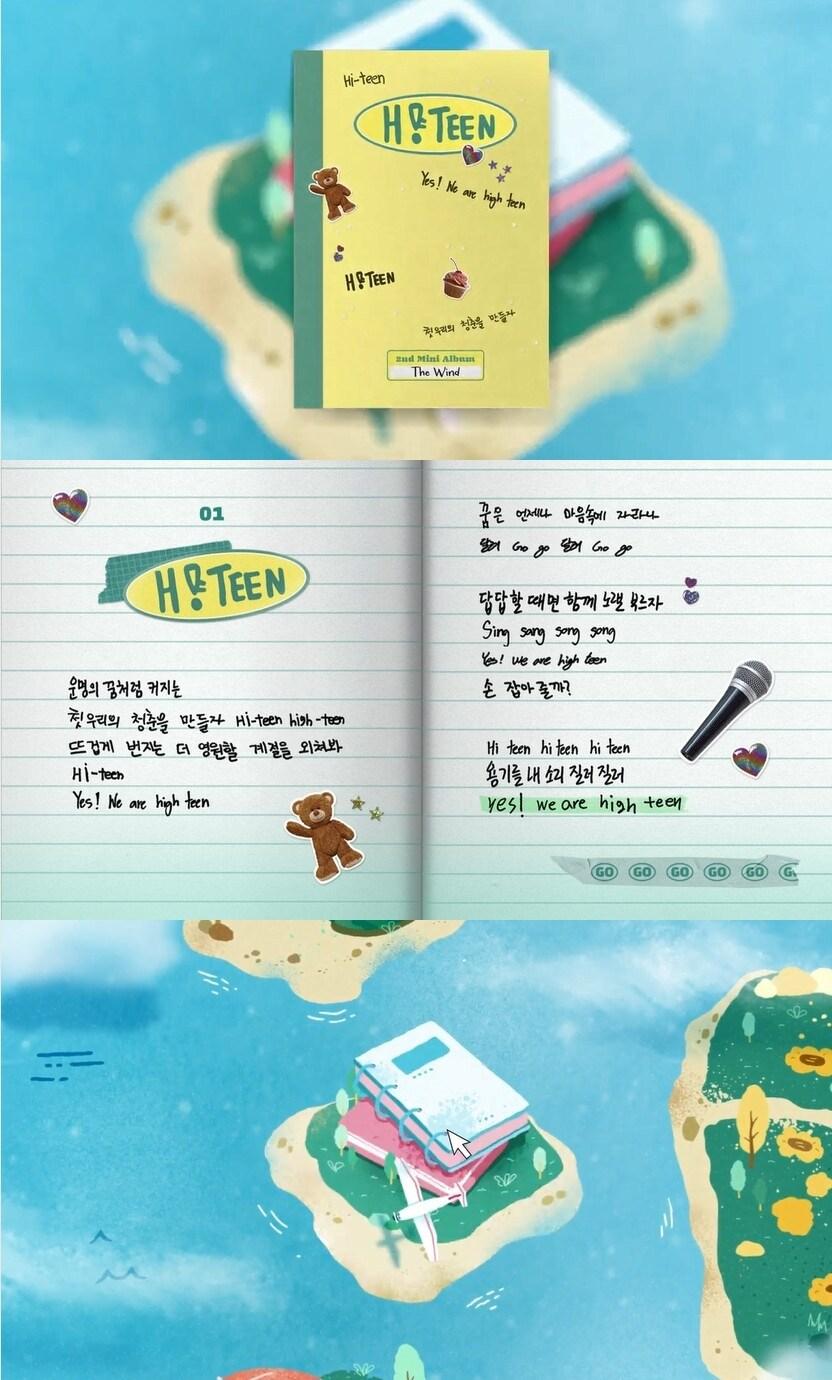 Hi-teen
HI TEEN
Yes! We are high teen
HI TEEN
첫 우리의 청춘을 만들자
2nd Mini Album
The Wind
01
HI TEEN
운명의 꿈처럼 커지는
첫 우리의 청춘을 만들자 Hi-teen high-teen
뜨겁게 번지는 더 영원할 계절을 외쳐봐
Hi-teen
Yes! We are high teen
꿈은 언제나 마음속에 자라나
달려 Go go 달려 Go go
답답할 때면 함께 노랠 부르자
Sing song song song
Yes! we are high teen
손 잡아 줄까?
Hi teen hi teen hi teen
용기를 내 소리 질러 질러
yes! we are high teen
GO GO GO GO GO